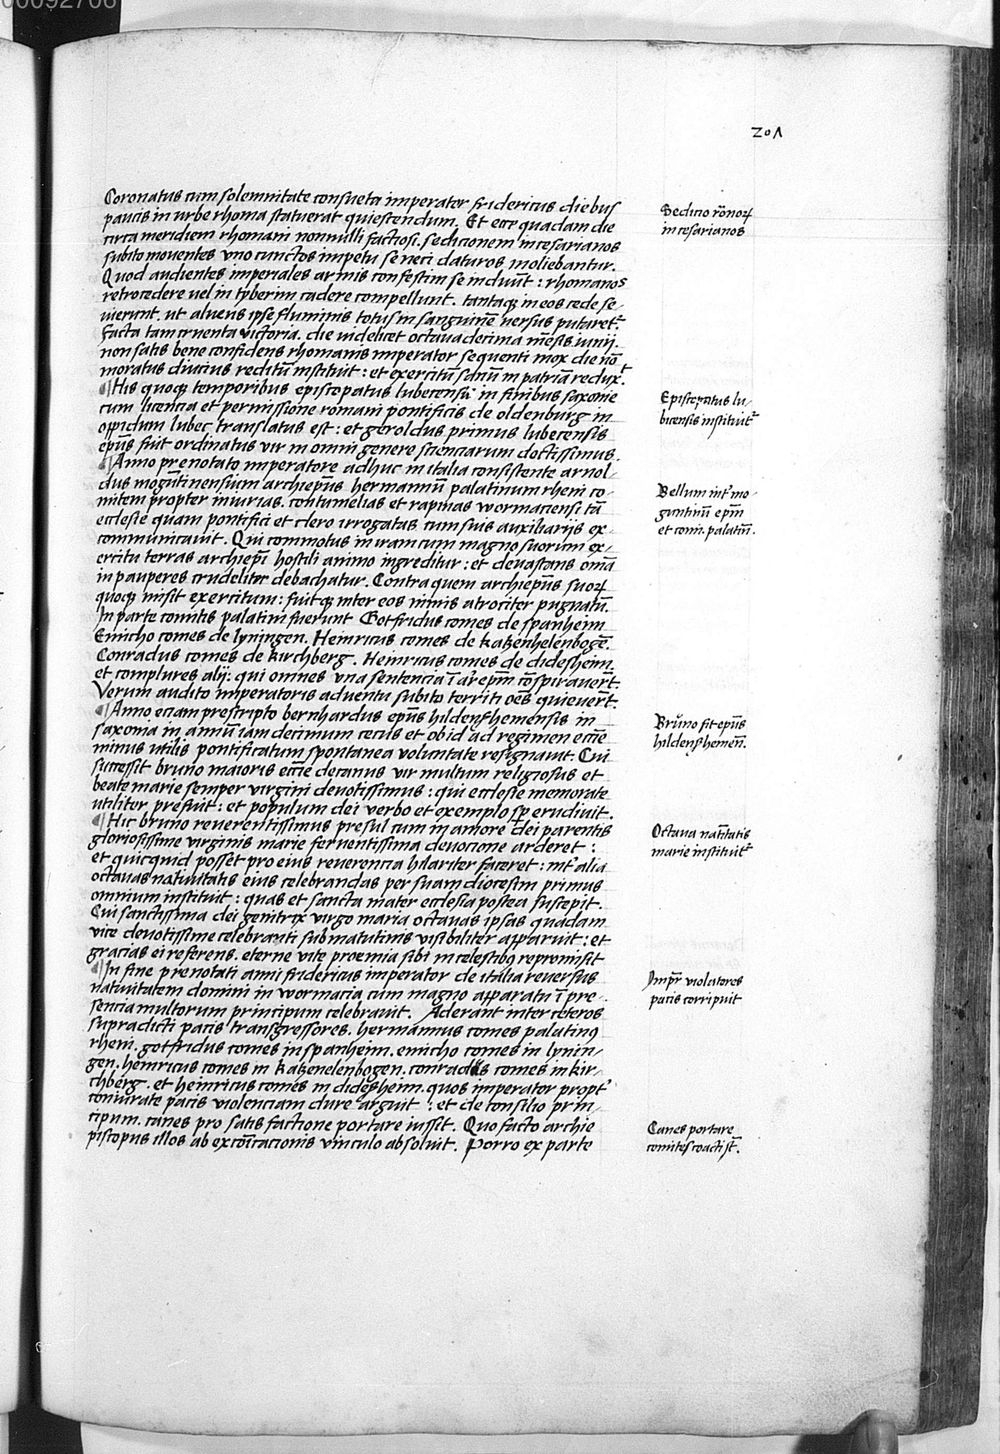 00092706
201
Coronatus cum solemnitate consueta imperator fridericus diebus
paucis in urbe rhoma statuerat quiescendum. Et ecce quadam die
circa meridiem rhomani nonnulli factiosi. sedicionem in cesarianos
subito mouentes uno cunctos impetu se neci daturos moliebantur.
Quod audientes imperiales armis confestim se induūt : rhomanos
retrocedere uel in tyberim cadere compellunt. tantaqꝫ in eos cede se-
uierunt. ut alueus ipse fluminis totus in sanguinē uersus putaret̄.
Facta tam cruenta uictoria. die uidelicet octauadecima mēsis iunij.
non satis bene confidens rhomanis imperator sequenti mox die nō
moratus diucius reditū instituit : et exercitū sanū in patriā reduxt̄.
¶ His quoqꝫ temporibus episcopatus lubecensis in finibus saxonie
cum licencia et permissione romani pontificis de oldenburg in
oppidum lubec translatus est : et geroldus primus lubecensis
ep̄us fuit ordinatus vir in omni genere scienciarum doctissimus.
¶ Anno prenotato imperatore adhuc in italia consistente arnol-
dus mogūtinensium archiep̄us hermannū palatinum rheni co-
mitem propter iniurias. contumelias et rapinas wormaciensi tā
ecclesie quam pontifici et clero irrogatas cum suis auxiliarijs ex-
communicauit. Qui commotus in iram cum magno suorum ex-
ercitu terras archiep̄i hostili animo ingreditur : et deuastans om̄ia
in pauperes crudeliter debachatur. Contra quem archiep̄us suoꝝ
quoqꝫ misit exercitum : fuitqꝫ inter eos nimis atrociter pugnatū.
In parte comitis palatini fuerunt Gotfridus comes de spanheim
Emicho comes de lyningen. Heinricus comes de katzenhelenbogē.
Conradus comes de kirchberg. Heinricus comes de didesheim.
et complures alij: qui omnes vna sentencia ī ar̄ep̄m cōspirauer̄t.
Verum audito imperatoris aduentu subito territi oēs quieuer̄t.
¶ Anno eciam prescripto bernhardus ep̄us hildenshemensis in
saxonia in annū iam decimum cecus et ob id ad regimen ecc̄ie
minus utilis pontificatum spontanea voluntate resignauit. Cui
successit bruno maioris ecc̄ie decanus vir multum religiosus et
beate marie semper virgini deuotissimus : qui ecclesie memorate
utiliter prefuit : et populum dei verbo et exemplo sp̄ erudiuit.
¶ Hic bruno reuerentissimus presul cum in amore dei parentis
gloriosissime virginis marie feruentissima deuocione arderet :
et quicquid posset pro eius reuerencia hilariter faceret : int̄ alia
octauas natiuitatis eius celebrandas per suam diocesim primus
omnium instituit : quas et sancta mater ecclesia postea suscepit.
Cui sanctissima dei genitrix virgo maria octauas ipsas quadam
vice deuotissime celebranti sub matutinis visibiliter apparuit : et
gracias ei referens. eterne vite proemia sibi in celestibꝰ repromisit
¶ In fine prenotati anni fridericus imperator de italia reuersus
natiuitatem domini in wormacia cum magno apparatu ī pre-
sencia multorum principum celebrauit. Aderant inter ceteros
supradicti pacis transgressores. hermannus comes palatinꝰ
rheni. gotfridus comes in spanheim. emicho comes in lynin-
gen. heinricus comes in katzenelenbogen. conradus comes in kir-
chberg. et heinricus comes in didesheim. quos imperator propt̄
coniurate pacis violenciam dure arguit : et de consilio prin-
cipum. canes pro satisfactione portare iussit. Quo facto archie
piscopus illos ab excōicacionis vinculo absoluit. Porro ex parte
Sedicio rōnoꝝ
in cesarianos
Episcopatus lu-
bicensis instituit̄
Bellum int̄ mo-
guntinū ep̄m
et com̄. palatīn.
Brūno fit ep̄us
hildenshemeñ.
Octaua natītatis
marie instituit̄
Imp̄r violatores
pacis corripuit
Canes portare
comites coacti st̄.